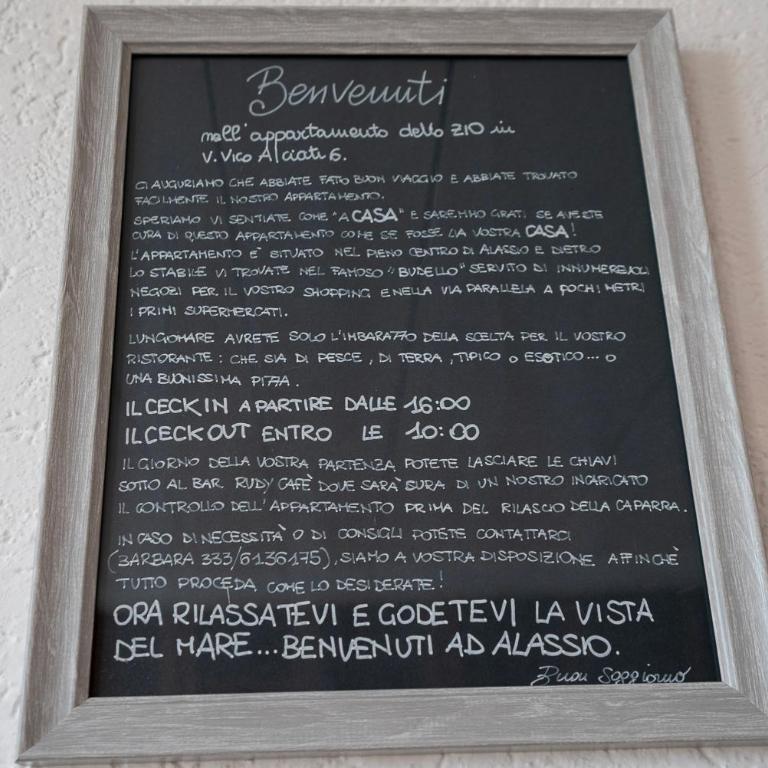 Benvenuti
nell'appartamento dello ZIO in
V. Vico Alciati 6.
CI AUGURIAMO CHE ABBIATE FATO BUON VIAGGIO E ABBIATE TROVATO
FACILMENTE IL NOSTRO APPARTAMENTO.
SPERIAMO VI SENTIATE COME "A CASA" E SAREMMO GRATI SE AVESTE
CURA DI QUESTO APPARTAMENTO COME SE FOSSE LA VOSTRA CASA!
L'APPARTAMENTO E' SITUATO NEL PIENO CENTRO DI ALASSIO E DIETRO
LO STABILE VI TROVATE NEL FAMOSO "BUDELLO" SERVITO DI INNUMEREVOLI
NEGOZI PER IL VOSTRO SHOPPING E NELLA VIA PARALLELA A POCHI METRI
I PRIMI SUPERMERCATI.
LUNGOMARE AVRETE SOLO L'IMBARAZZO DELLA SCELTA PER IL VOSTRO
RISTORANTE: CHE SIA DI PESCE, DI TERRA, TIPICO O ESOTICO... O
UNA BUONISSIMA PIZZA.
IL CECK IN A PARTIRE DALLE 16:00
IL CECK OUT ENTRO LE 10:00
IL GIORNO DELLA VOSTRA PARTENZA POTETE LASCIARE LE CHIAVI
SOTTO AL BAR RUDY CAFÈ DOVE SARA' SURA DI UN NOSTRO INCARICATO
IL CONTROLLO DELL'APPARTAMENTO PRIMA DEL RILASCIO DELLA CAPARRA.
IN CASO DI NECESSITA' O DI CONSIGLI POTETE CONTATTARCI
(BARBARA 333/6136175), SIAMO A VOSTRA DISPOSIZIONE AFFINCHÈ
TUTTO PROCEDA COME LO DESIDERATE!
ORA RILASSATEVI E GODETEVI LA VISTA
DEL MARE... BENVENUTI AD ALASSIO.
Buon Soggiorno